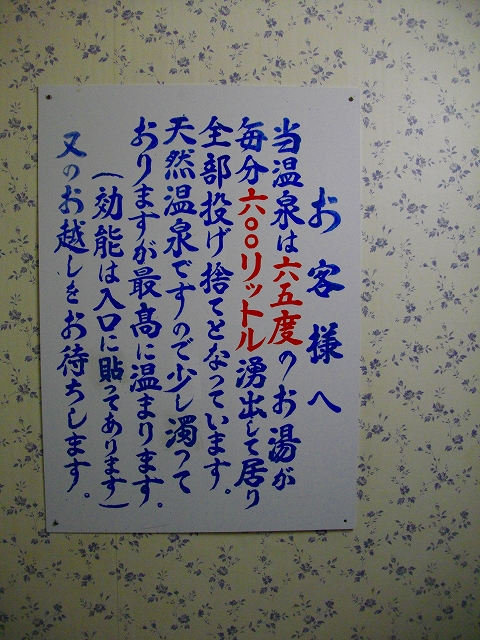 お客様へ
当温泉は六五度のお湯が
毎分六〇〇リットル湧出して居り
全部投げ捨てとなっています。
天然温泉ですので少し濁って
おりますが最高に温まります。
(効能は入口に貼ってあります)
又のお越しをお待ちします。